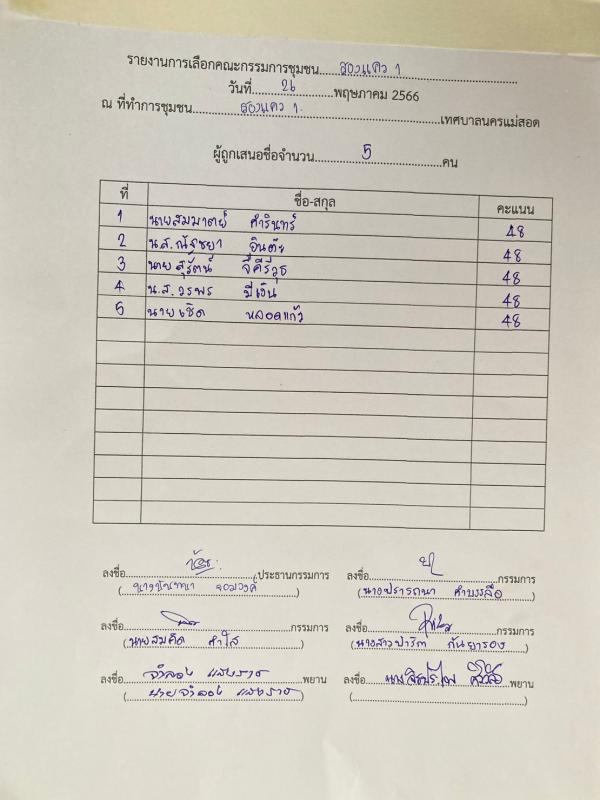 รายงานการเลือกคณะกรรมการชุมชน....สองแคว 1
วันที่....26....พฤษภาคม 2566
ณ ที่ทำการชุมชน....สองแคว 1....เทศบาลนครแม่สอด
ผู้ถูกเสนอชื่อจำนวน....5....คน
ที่ ชื่อ-สกุล คะแนน
1 นายสมมาตย์ คำรินทร์ 48
2 น.ส.ณัฐชยา อินต๊ะ 48
3 นายสุรัตน์ 48
4 น.ส.วรพร ปีเงิน 48
5 นายเชิด หลอดแก้ว 48
ลงชื่อ....ประธานกรรมการ ลงชื่อ....กรรมการ
(....) (นางปรารถนา คำบรรลือ)
ลงชื่อ....กรรมการ ลงชื่อ....กรรมการ
(นายสมคิด คำใส) (นางสาวปาริตา กันยารอง)
ลงชื่อ....จำลอง แสงราช....พยาน ลงชื่อ....พยาน
(นายจำลอง แสงราช) (....)